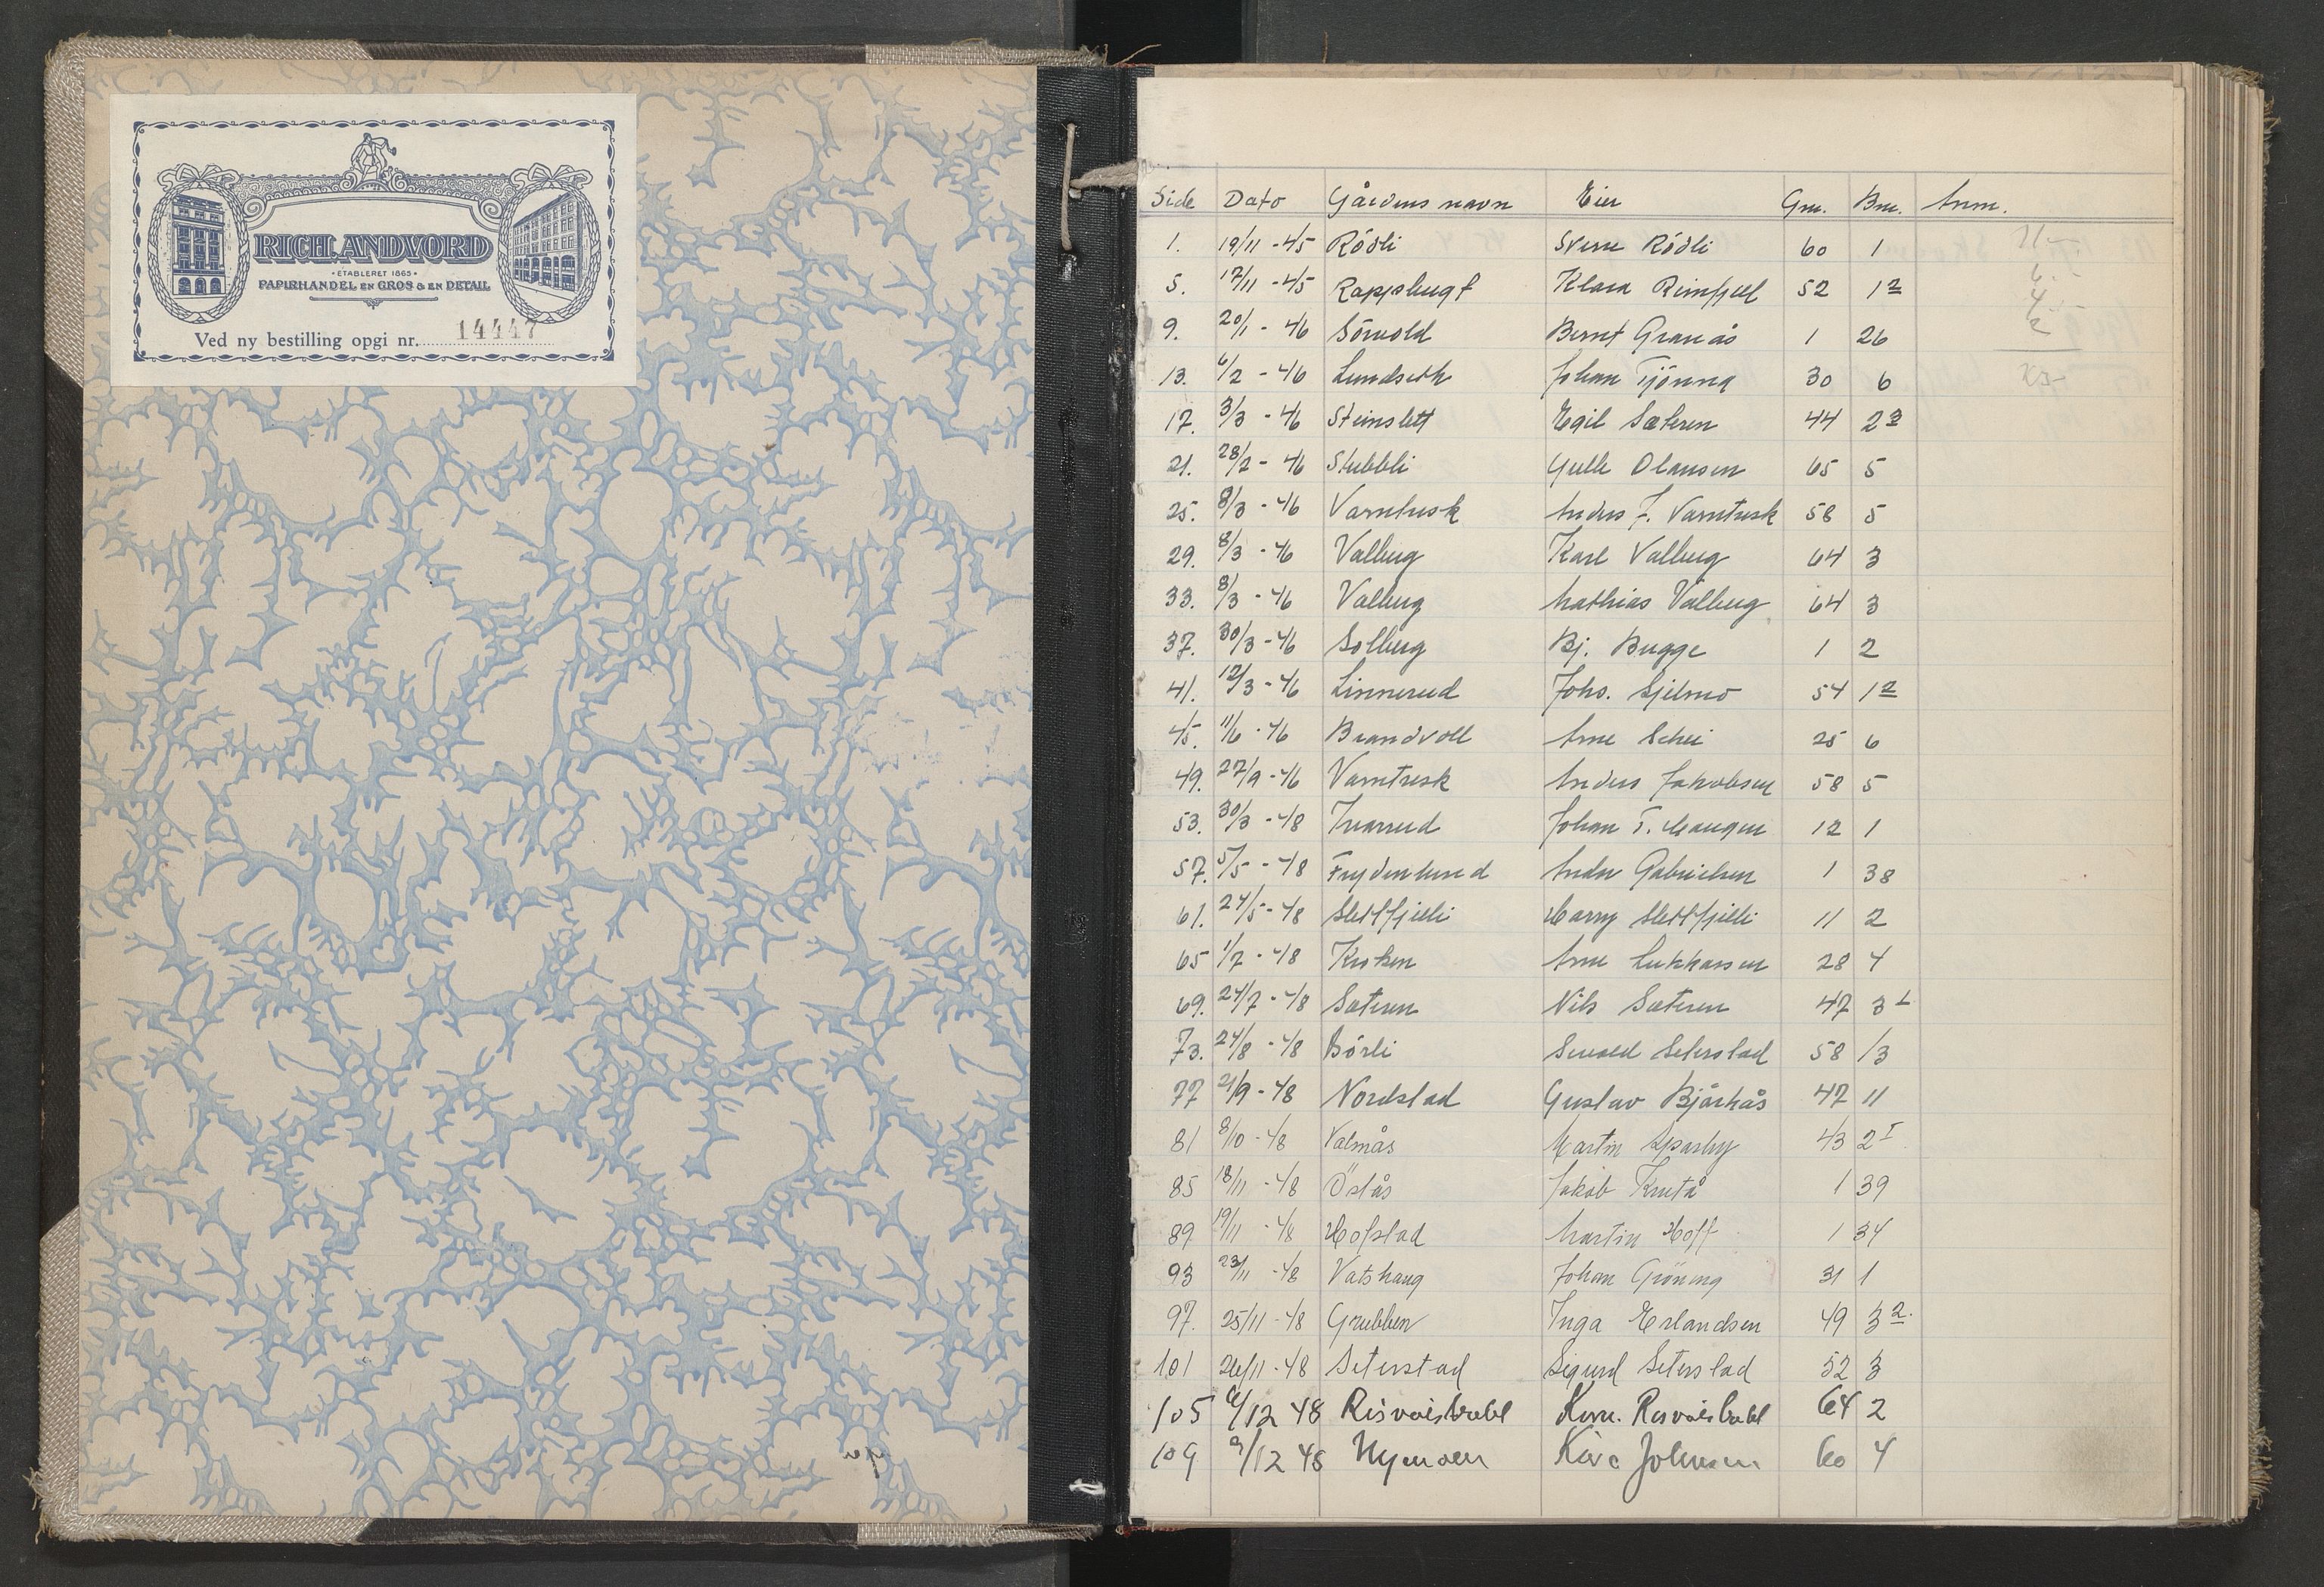 RICH. ANDVORD
• ETABLERET 1865 •
PAPIRHANDEL EN GROS & EN DETAIL
Ved ny bestilling opgi nr. 14447
Side Dato Gårdens navn Eier Gnr. Bnr. Anm.
1. 19/11 -45 Rödli Sverre Rödli 60 1
5. 17/11 -45 Rapphugt Klara Rimfjell 52 12
9. 20/1 - 46 Sörvold Bernt Granås 1 26
13. 6/2 - 46 Lundseth Johan Tjönna 30 6
17. 3/3 - 46 Steinslett Egil Sæteren 44 23
21. 28/2 - 46 Stubbli Olausen 65 5
25. 8/3 - 46 Varntresk Anders J. Varntresk 58 5
29. 8/3 - 46 Valberg Karl Valberg 64 3
33. 8/3 - 46 Valberg Mathias Valberg 64 3
37. 30/3 - 46 Solberg Bj. Bugge 1 2
41. 12/3 - 46 Linnerud Johs. Sjilmo 54 12
45. 11/6 - 46 Brandvoll Arne Schei 25 6
49. 27/9 - 46 Varntresk Anders Jakobsen 58 5
53. 30/3 - 48 Ivarrud Johan T. Haugen 12 1
57. 5/5 - 48 Frydenlund Andor Gabrielsen 1 38
61. 24/5 - 48 Slettfjelli Harry Slettfjelli 11 2
65 1/7 - 48 Kroken Arne Lukkassen 28 4
69. 24/7 - 48 Sæteren Nils Sæteren 47 3
73. 24/8 - 48 Börli Sevald Seterstad 58 13
77 21/9 - 48 Nordstad Gustav Bjørkås 47 11
81 8/10 - 48 Valmås Martin Sparby 43 2 I
85 18/11 - 48 Östås Jakob Krutå 1 39
89 19/11 - 48 Hofstad Martin Hoff 1 34
93 23/11 - 48 Vatshaug Johan Gröning 31 1
97. 25/11 - 48 Grubben Inga Erlandsen 49 32.
101 26/11 - 48 Seterstad Sigurd Seterstad 52 3
105 /12 48 Risvoistrabl 64 2
109 9/12 48 Nymoen Johnsen 60 4